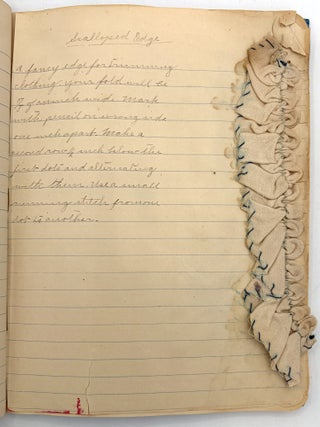 Scalloped Edge
A fancy edge for trimming
clothing. Your fold will be
7/8 of an inch wide. Mark
with pencil on wrong side
one inch apart. Make a
second row 7/8 inch below the
first dots and alternating
with them. Use a small
running stitch from one
dot to another.